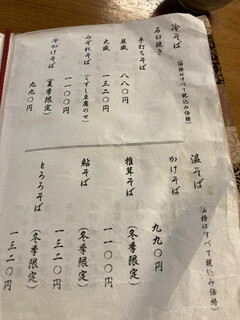 冷そば（価格はすべて税込み価格）
石臼挽き
手打ちそば
並盛　八八〇円
大盛　一三二〇円
みぞれそば（くずし豆腐のせ）
一一〇〇円
冷かけそば（夏季限定）
九九〇円
温そば（価格はすべて税込み価格）
かけそば
九九〇円
椎茸そば（冬季限定）
一一〇〇円
鮎そば（冬季限定）
一三二〇円
とろろそば（冬季限定）
一三二〇円